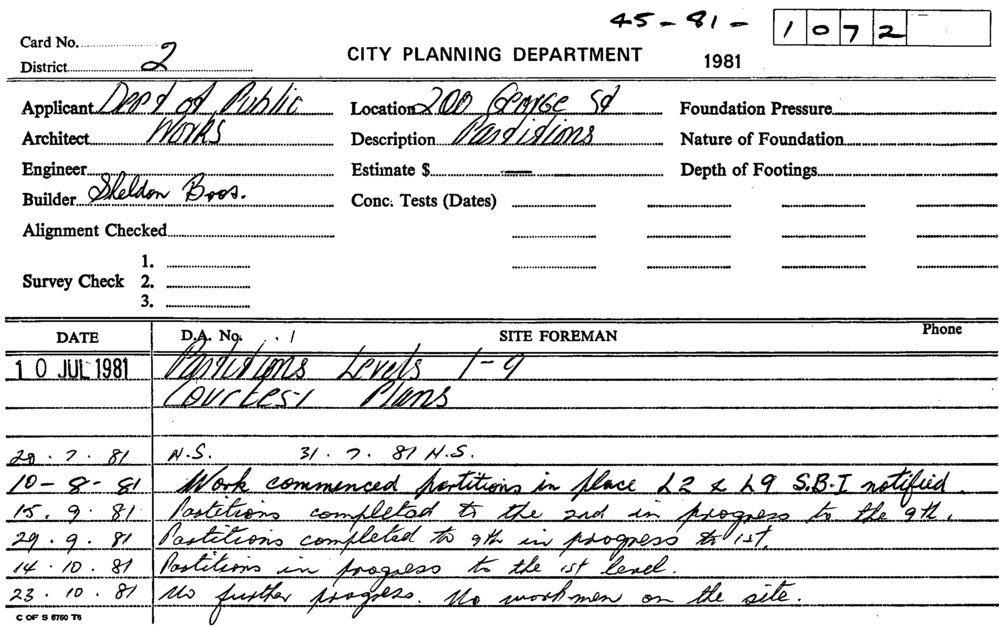 45-81- 1072
Card No. CITY PLANNING DEPARTMENT 1981
District 2
Applicant Dept of Public Location 200 George St Foundation Pressure
Architect Works Description Partitions Nature of Foundation
Engineer Estimate $ — Depth of Footings
Builder Sheldon Bros. Conc. Tests (Dates)
Alignment Checked
1.
Survey Check 2.
3.
DATE D.A. No. SITE FOREMAN Phone
10 JUL 1981 Partitions Levels 1-9
Courtesy Plans
28.7.81 N.S. 31.7.81 N.S.
10-8-81 Work commenced partitions in place L2 & L9 S.B.I notified.
15.9.81 Partitions completed to the 2nd in progress to the 9th.
29.9.81 Partitions completed to 9th in progress to 1st.
14.10.81 Partitions in progress to the 1st level.
23.10.81 No further progress. No workmen on the site.
C OF S 6760 T6